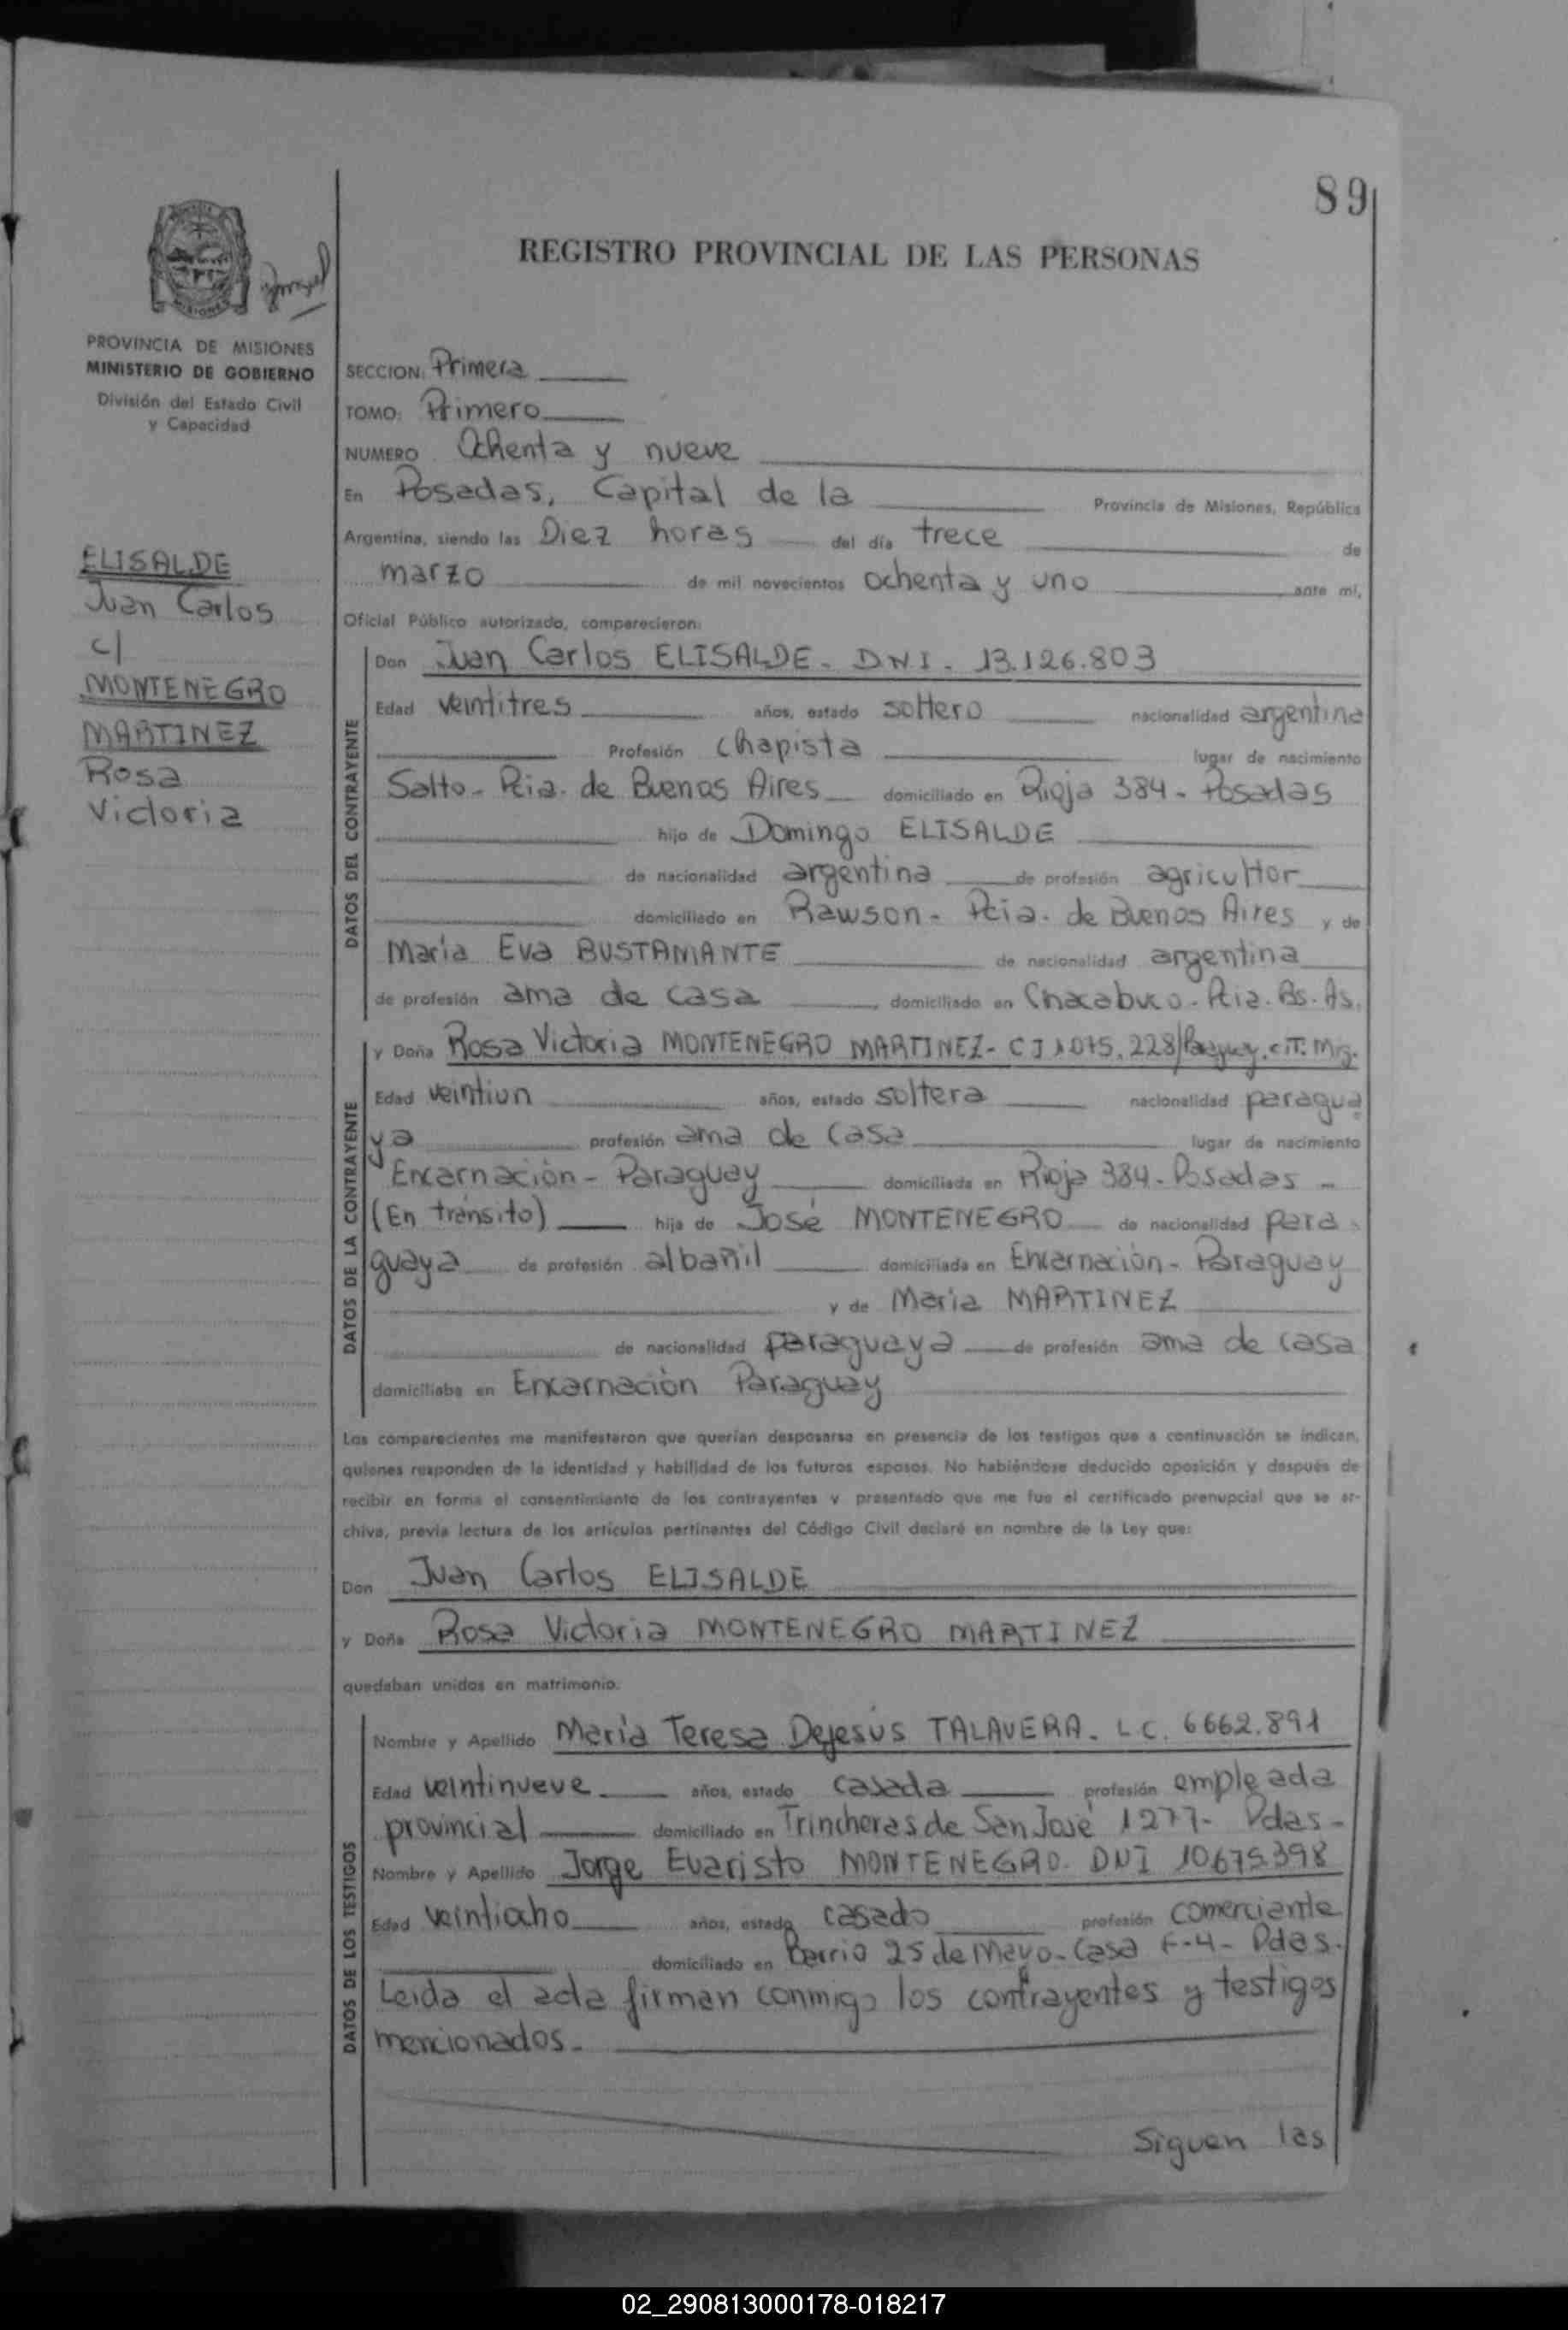 89
REGISTRO PROVINCIAL DE LAS PERSONAS
MISIONES
PROVINCIA DE MISIONES
MINISTERIO DE GOBIERNO
División del Estado Civil
y Capacidad
ELISALDE
Juan Carlos
c/
MONTENEGRO
MARTINEZ
Rosa
Victoria
SECCION: Primera
TOMO: Primero
NUMERO Ochenta y nueve
En Posadas, Capital de la Provincia de Misiones, República
Argentina, siendo las Diez horas del día trece de
marzo de mil novecientos ochenta y uno ante mí,
Oficial Público autorizado, comparecieron:
DATOS DEL CONTRAYENTE
Don Juan Carlos ELISALDE - D.N.I. - 13.126.803
Edad veintitres años, estado soltero nacionalidad argentina
Profesión Chapista lugar de nacimiento
Salto - Pcia. de Buenos Aires domiciliado en Rioja 384 - Posadas
hijo de Domingo ELISALDE
de nacionalidad argentina de profesión agricultor
domiciliado en Rawson - Pcia. de Buenos Aires y de
María Eva BUSTAMANTE de nacionalidad argentina
de profesión ama de casa, domiciliada en Chacabuco - Pcia. Bs. As.
DATOS DE LA CONTRAYENTE
y Doña Rosa Victoria MONTENEGRO MARTINEZ - CI 1.075.228/Paraguay
Edad veintiun años, estado soltera nacionalidad paragua
ya profesión ama de casa lugar de nacimiento
Encarnación - Paraguay domiciliada en Rioja 384 - Posadas -
(En tránsito) hija de José MONTENEGRO de nacionalidad para
guaya de profesión albañil domiciliada en Encarnación - Paraguay
y de María MARTINEZ
de nacionalidad paraguaya de profesión ama de casa
domiciliaba en Encarnación Paraguay
Los comparecientes me manifestaron que querían desposarse en presencia de los testigos que a continuación se indican,
quienes responden de la identidad y habilidad de los futuros esposos. No habiéndose deducido oposición y después de
recibir en forma el consentimiento de los contrayentes y presentado que me fue el certificado prenupcial que se ar-
chiva, previa lectura de los artículos pertinentes del Código Civil declaré en nombre de la Ley que:
Don Juan Carlos ELISALDE
y Doña Rosa Victoria MONTENEGRO MARTINEZ
quedaban unidos en matrimonio.
DATOS DE LOS TESTIGOS
Nombre y Apellido María Teresa Dejesús TALAVERA - L.C. 6662.891
Edad veintinueve años, estado casada profesión empleada
provincial domiciliado en Trincheras de San José 1277 - Pdas -
Nombre y Apellido Jorge Evaristo MONTENEGRO. DNI 10675398
Edad veintiocho años, estado casado profesión comerciante
domiciliado en Barrio 25 de Mayo - Casa F-4 - Pdas.
Leida el acta firman conmigo los contrayentes y testigos
mencionados.
Siguen las
02_290813000178-018217